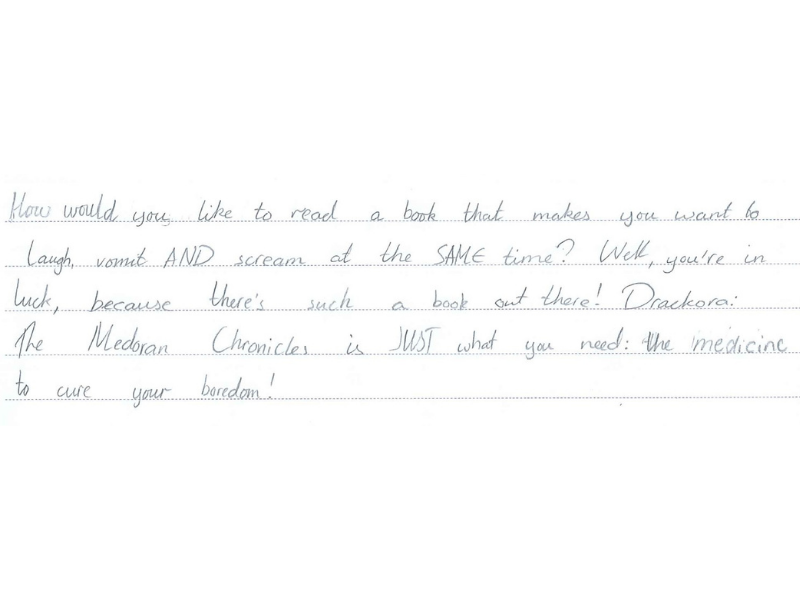 How would you like to read a book that makes you want to
laugh, vomit AND scream at the SAME time? Well, you're in
luck, because there's such a book out there! Drackora:
The Medoran Chronicles is JUST what you need: the medicine
to cure your boredom!